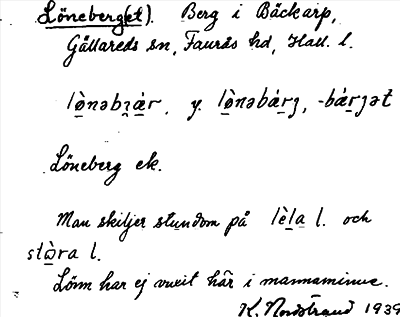 Löneberg(et). Berg i Bäckarp,
Gällareds sn, Faurås hd, Hall. l.
lø̀nəbʒ̣ár, y. lø̀nəbárʒ, -bárʒət
Löneberg ek.
Man skiljer stundom på lèla l. och
stòra l.
Lönn har ej vuxit här i mannaminne.
K. Nordstrand 1939